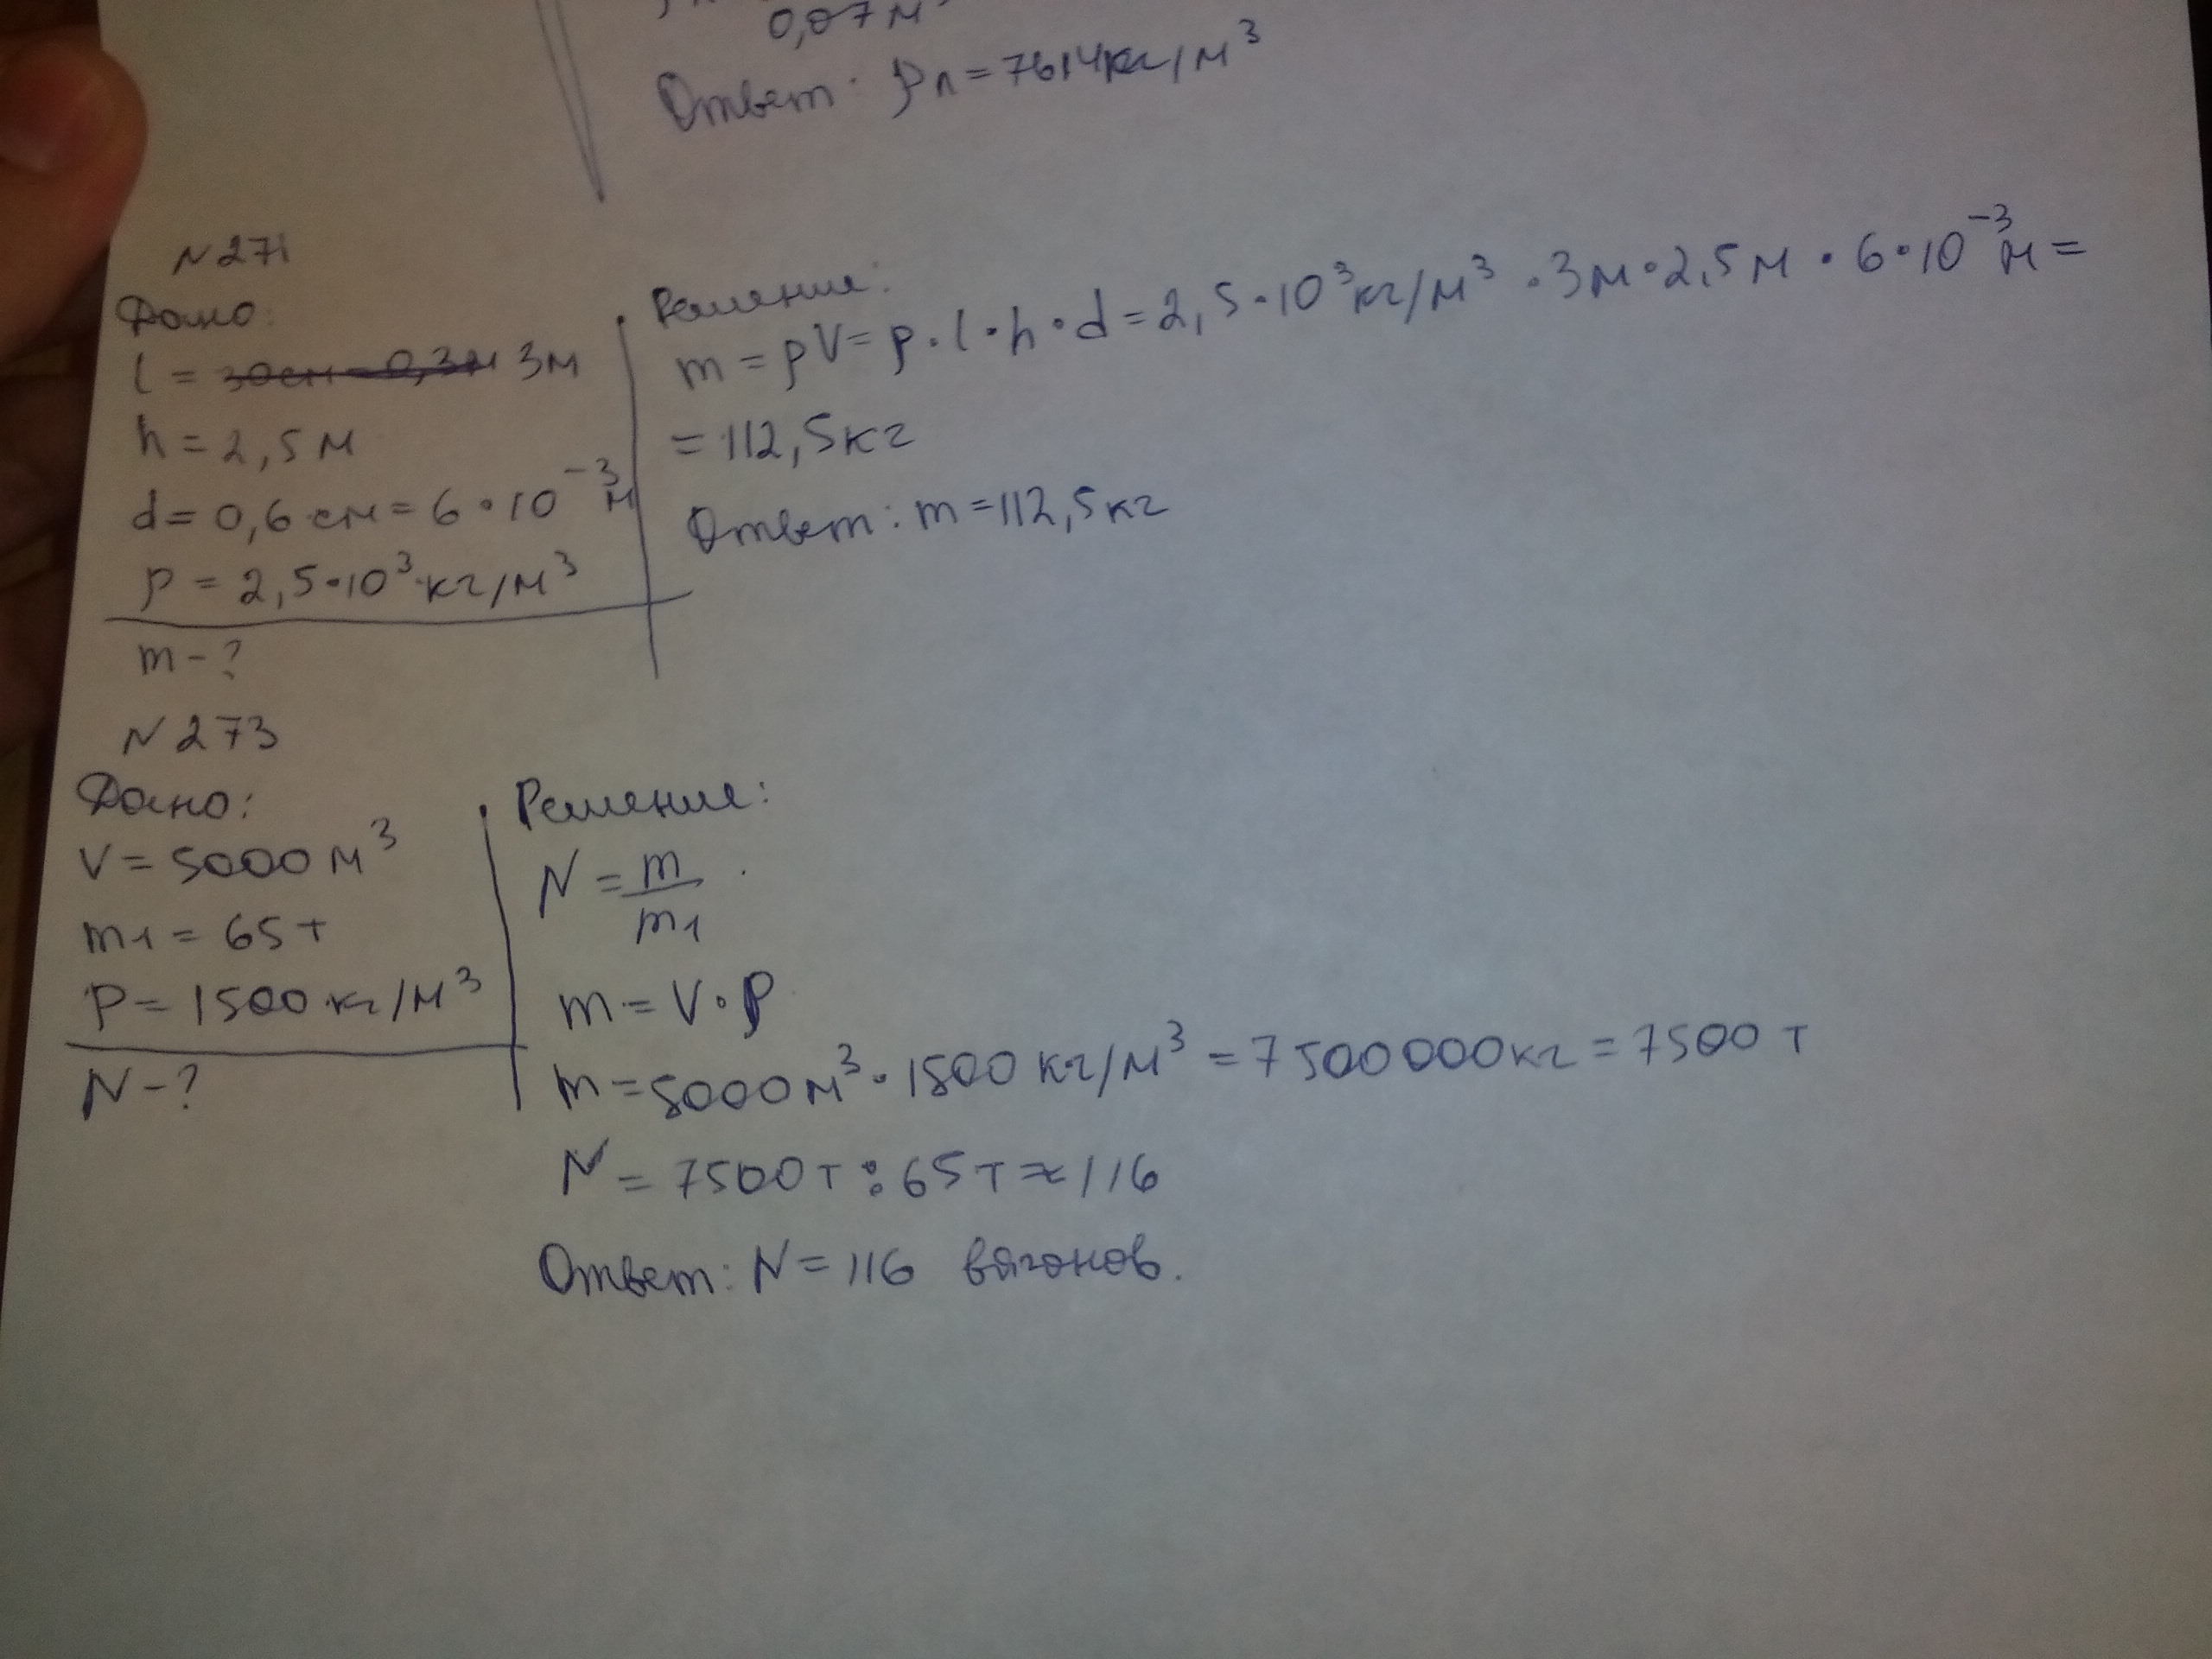 0,07 м
Ответ: ρл = 7614кг/м³
N 271
Дано:
l = 30см = 0,3м 3м
h = 2,5 м
d = 0,6 см = 6 • 10⁻³ м
ρ = 2,5•10³ кг/м³
m - ?
Решение:
m = ρV = ρ • l • h • d = 2,5•10³ кг/м³ • 3м • 2,5м • 6•10⁻³ м =
= 112,5кг
Ответ: m = 112,5кг
N 273
Дано:
V = 5000 м³
m₁ = 65 т
ρ = 1500 кг/м³
N - ?
Решение:
N = m/m₁
m = V • ρ
m = 5000м³ • 1500 кг/м³ = 7500000кг = 7500 т
N = 7500т : 65т ≈ 116
Ответ: N = 116 вагонов.